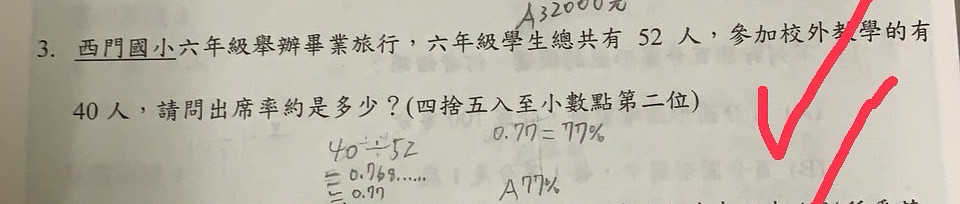 A32000元
3. 西門國小六年級舉辦畢業旅行，六年級學生總共有 52 人，參加校外教學的有
40 人，請問出席率約是多少？(四捨五入至小數點第二位)
40÷52
0.77=77%
=0.769......
=0.77
A77%